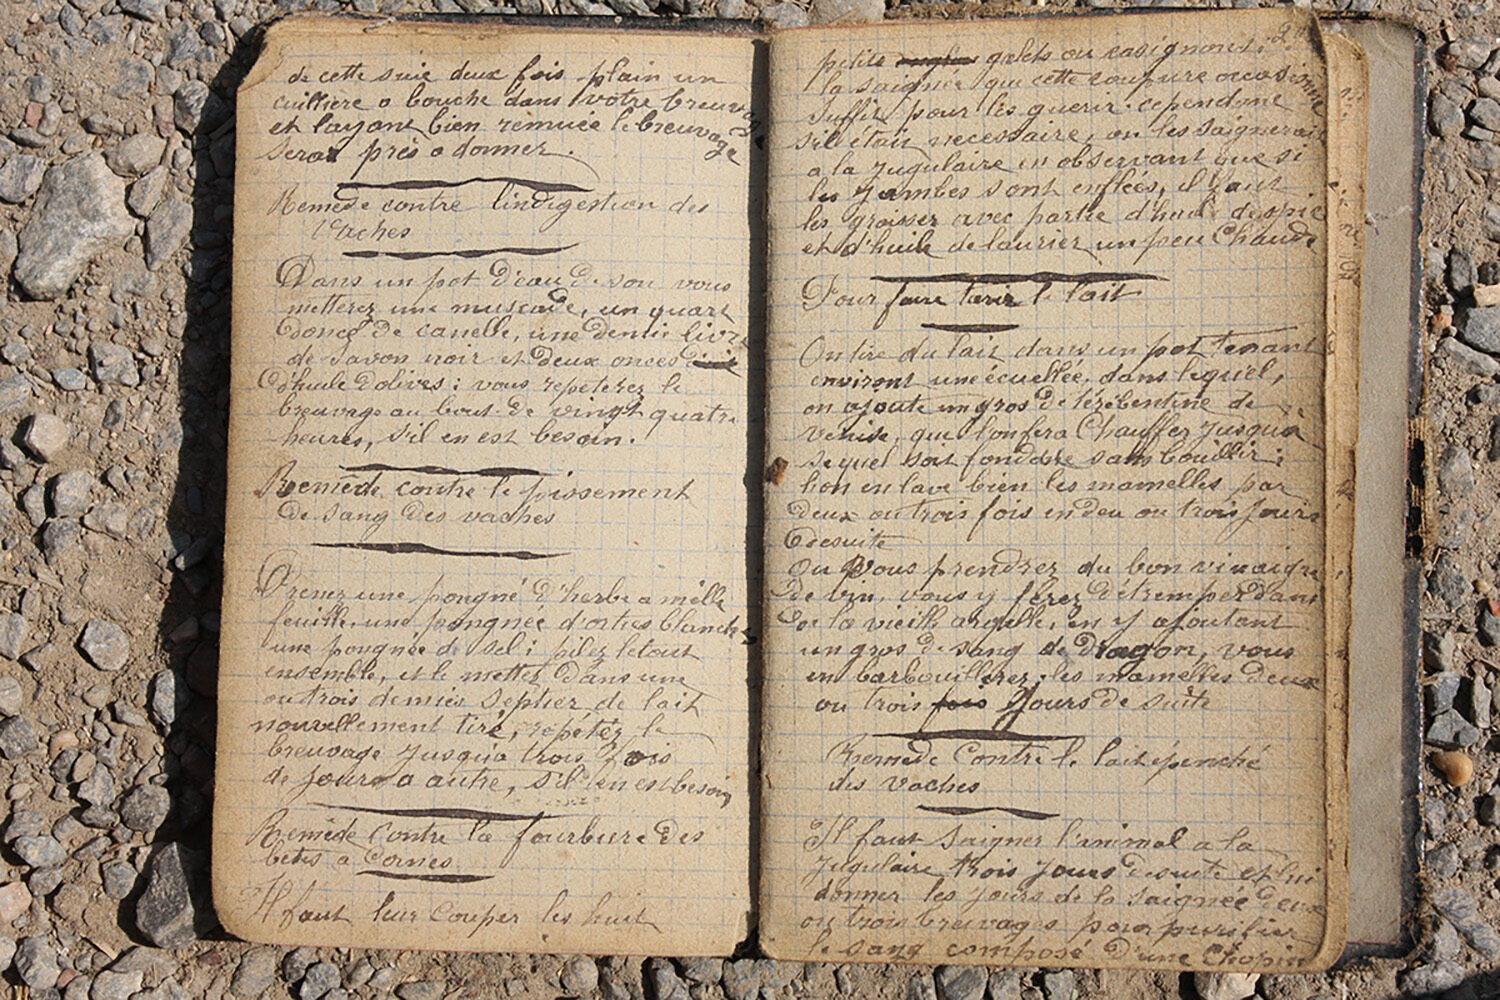 de cette suie deux fois plain un
cuilliere a bouche dans votre breuvage
et layant bien remuée le breuvage
sera près a donner.
Remède contre lindigestion des
Vaches
Dans un pot d'eau de son vous
metterez une muscade, un quart
donce de canelle, une demie livre
de savon noir et deux onces
d'huile d'olives ; vous repeterez le
breuvage au bout de vingt quatre
heures, s'il en est besoin.
Remède contre le pissement
de sang des vaches
Prenez une pongné d'herbe a mille
feuille, une pongnée d'orties blanche
une pongnée de sel ; pilez letout
ensemble, et le mettez dans une
ou trois demies septier de lait
nouvellement tiré, repétez le
breuvage jusqu'a trois fois
de jour a autre, s'il en est besoin
Remède contre la fourbure des
bêtes a Cornes
Il faut leur couper les huit
petits galets ou
la saignée que cette coupure occasionne
suffit pour les guerir. cependant
s'il était necessaire, on les saignerait
a la jugulaire en observant que si
les jambes sont enflées, il faut
les graisser avec partie d'huile despic
et d'huile de laurier un peu Chaude
Pour faire tarir le lait
On tire du lait dans un pot tenant
environt une écuellée, dans lequel,
on ajoute un gros de térébentine de
venise, que l'on fera Chauffer jusqua
sequel soit fondue sans bouillir ;
lion en lave bien les mamelles par
deux ou trois fois en deu ou trois jours
desuite
Ou Vous prendrez du bon vinaigre
de vin, vous y ferez détremper dans
de la vieille argille, en y ajoutant
un gros de sang de dragon, vous
en barbouillerez les mamelles deux
ou trois fois jours de suite
Remede Contre le lait épenché
des vaches
Il faut saigner l'animal a la
jugulaire trois jours desuite et lui
donner les jours de la saignée deux
ou trois breuvages pour purifier
le sang composé d'une Chopine